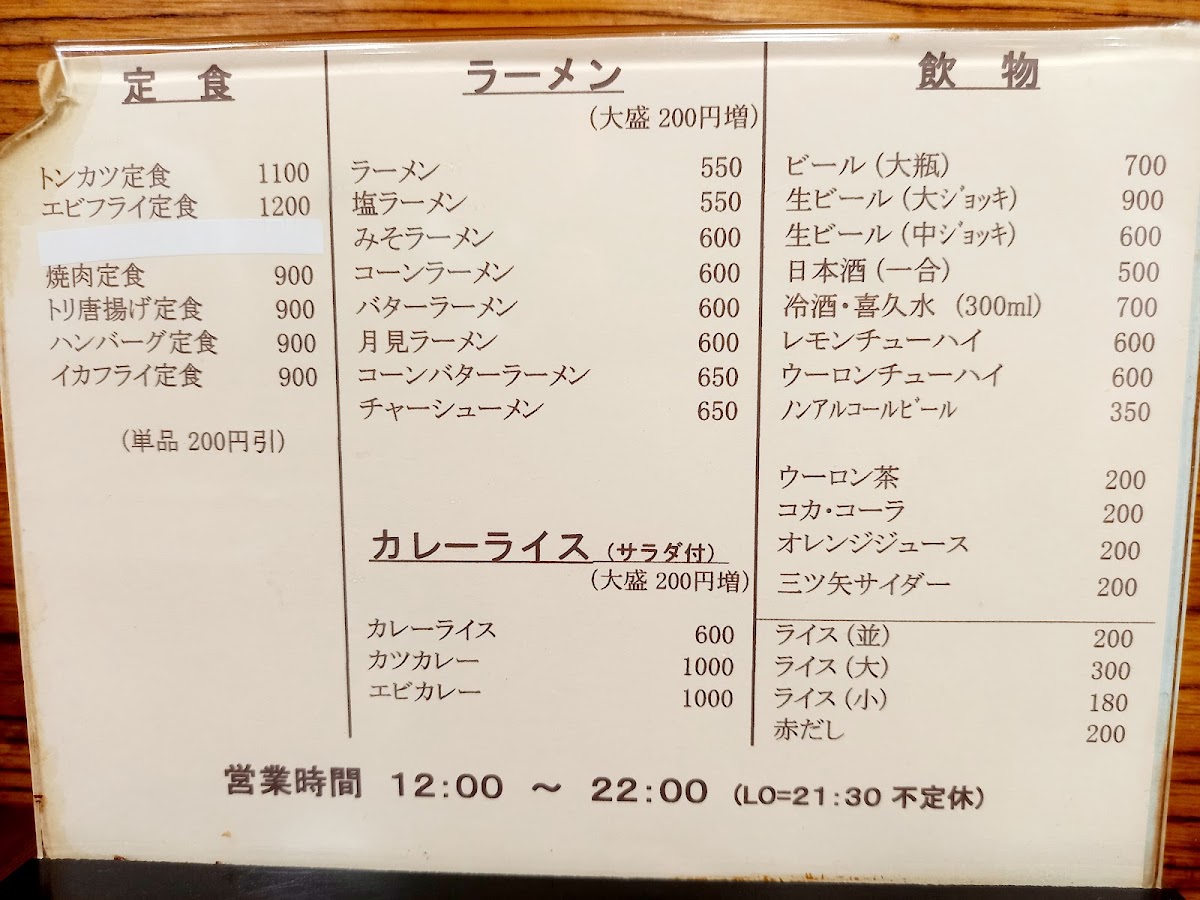 定 食
トンカツ定食 1100
エビフライ定食 1200
焼肉定食 900
トリ唐揚げ定食 900
ハンバーグ定食 900
イカフライ定食 900
(単品 200円引)
ラーメン
(大盛 200円増)
ラーメン 550
塩ラーメン 550
みそラーメン 600
コーンラーメン 600
バターラーメン 600
月見ラーメン 600
コーンバターラーメン 650
チャーシューメン 650
カレーライス (サラダ付)
(大盛 200円増)
カレーライス 600
カツカレー 1000
エビカレー 1000
飲 物
ビール (大瓶) 700
生ビール (大ｼﾞｮｯｷ) 900
生ビール (中ｼﾞｮｯｷ) 600
日本酒 (一合) 500
冷酒・喜久水 (300ml) 700
レモンチューハイ 600
ウーロンチューハイ 600
ﾉﾝｱﾙｺｰﾙﾋﾞｰﾙ 350
ウーロン茶 200
コカ・コーラ 200
オレンジジュース 200
三ツ矢サイダー 200
ライス (並) 200
ライス (大) 300
ライス (小) 180
赤だし 200
営業時間 12:00 ～ 22:00 (LO=21:30 不定休)